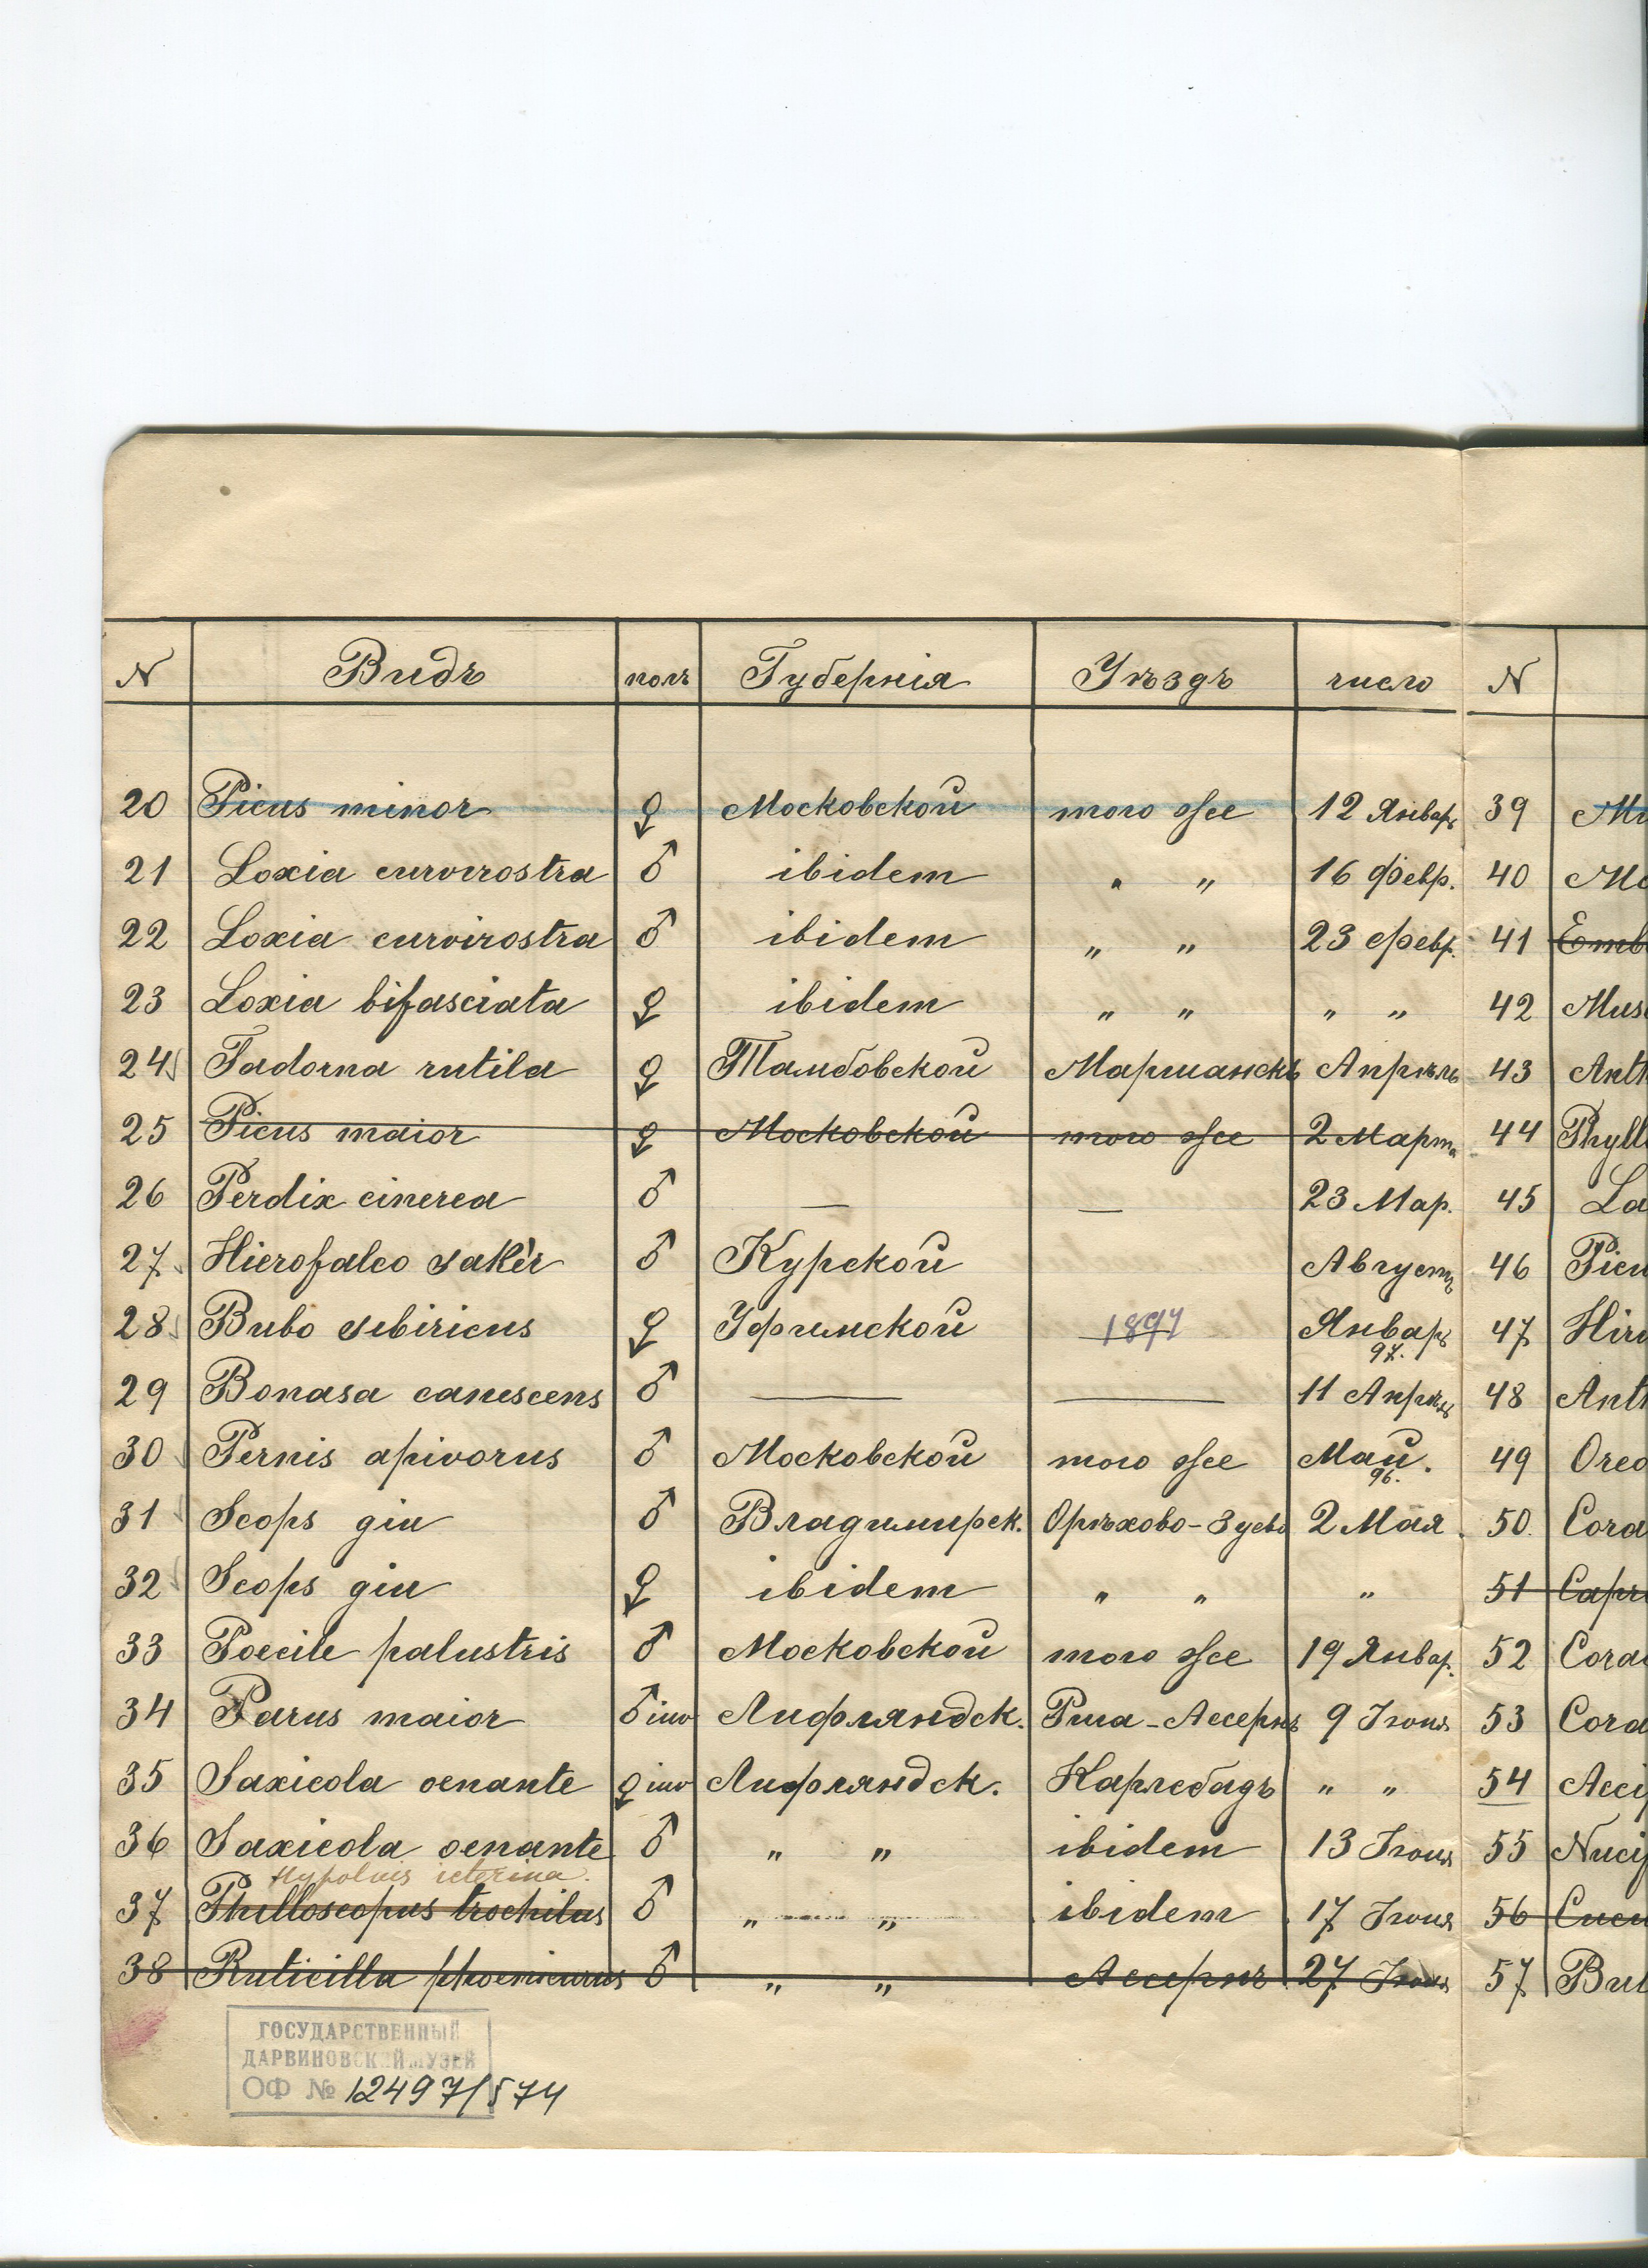 N Видъ полъ Губернія Уѣздъ число N
20 Picus minor ♀ Московской того же 12 Январь 39 Mu
21 Loxia curvirostra ♂ ibidem „ „ 16 Февр. 40
22 Loxia curvirostra ♂ ibidem „ „ 23 февр. 41 Emb
23 Loxia bifasciata ♀ ibidem „ „ „ „ 42 Mus
24 Tadorna rutila ♀ Тамбовской Моршанскъ Апрѣль 43 Anth
25 Picus maior ♀ Московской того же 2 Марта 44 Phyll
26 Perdix cinerea ♂ — — 23 Мар. 45 La
27 Hierofalco sakèr ♂ Курской Августъ 46 Picu
28 Bubo sibiricus ♀ Уфимской 1897 Январь 47 Hiru
97.
29 Bonasa canescens ♂ — — 11 Апрѣль 48 Anth
30 Pernis apivorus ♂ Московской того же Май. 49 Oreo
96.
31 Scops giu ♂ Владимирск. Орѣхово-Зуево 2 Мая. 50. Cora
32 Scops giu ♀ ibidem „ „ „ 51 Capr
33 Poecile palustris ♂ Московской того же 19 Январ. 52 Cora
34 Parus maior ♂ iuv Лифляндск. Рига-Ассернъ 9 Іюня 53 Cora
35 Saxicola oenante ♀ iuv Лифляндск. Карлсбадъ „ „ 54 Acci
36 Saxicola oenante ♂ „ „ ibidem 13 Іюня 55 Nuci
Hypolais icterina.
37 Phılloscopus trochilus ♂ „ „ ibidem 17 Іюня 56 Cucu
38 Ruticilla phoenicurus ♂ „ „ Ассернъ 27 Іюня 57 Bu
ГОСУДАРСТВЕННЫЙ
ДАРВИНОВСКИЙ МУЗЕЙ
ОФ № 12497/574